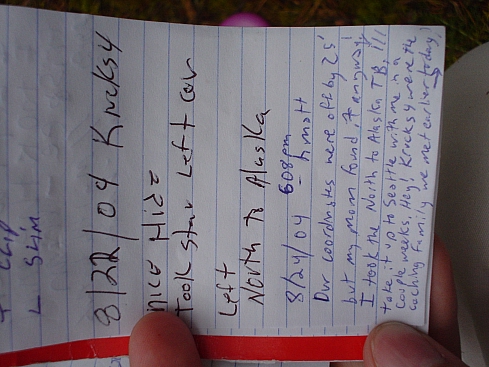 + CHIP
L SLIM
8/22/04 Krcksy
NICE Hide
Took Star Left car
Left
North to Alaska
8/24/04 608pm
- hmott
Our coordinates were off by 25'
but my mom found it anyway!
I took the North to Alaska TB, I'll
take it up to Seattle with me in a
couple weeks. Hey! Krcksy were the
caching family we met earlier today!